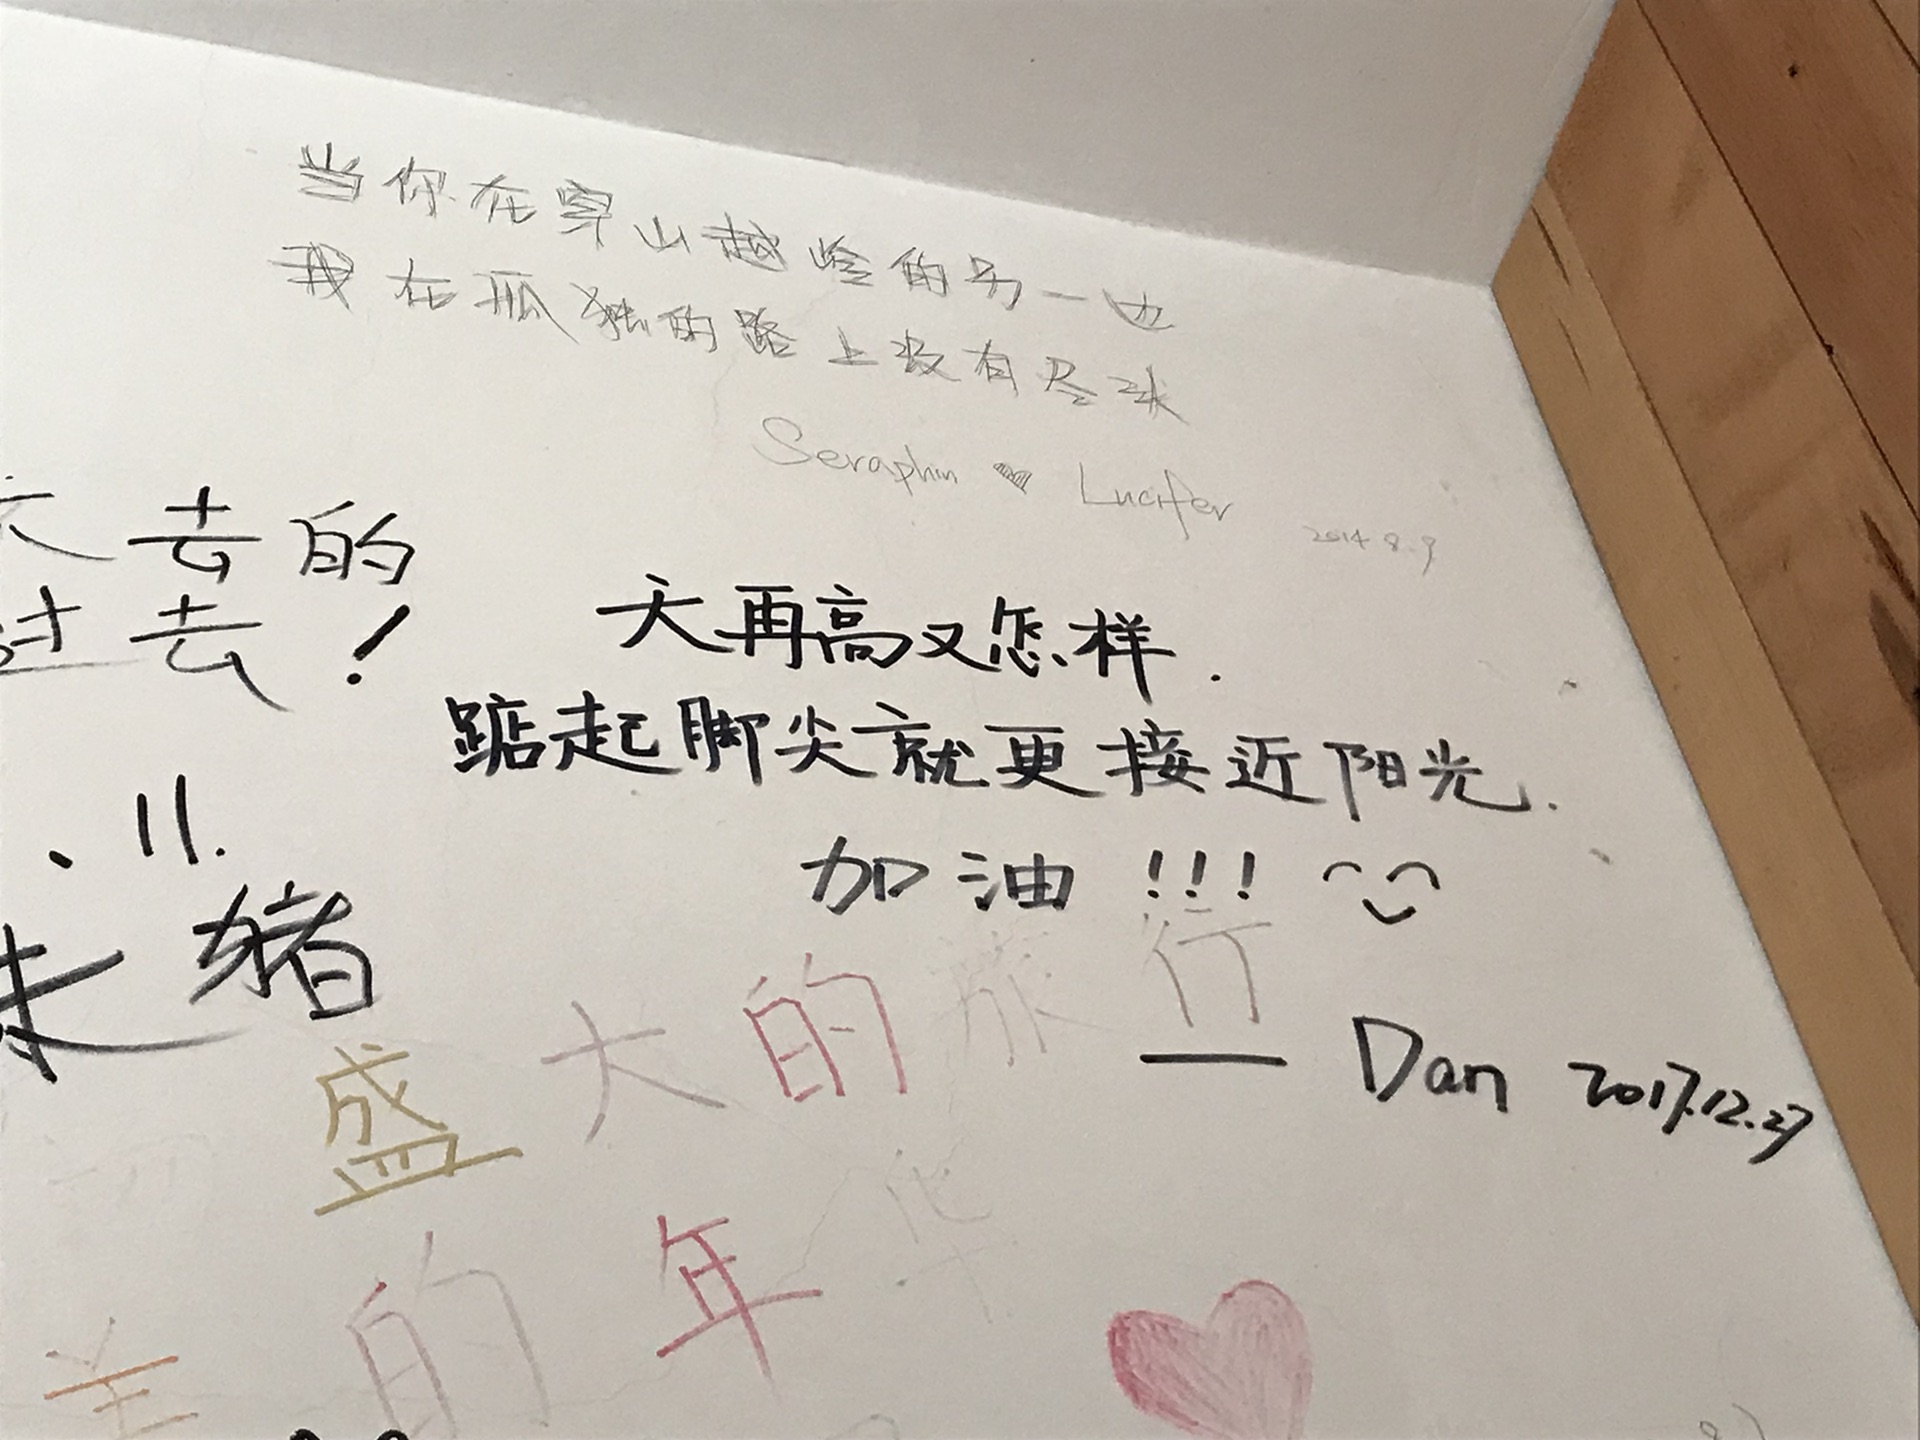 当你在穿山越岭的另一边
我在孤独的路上没有尽头
Seraphin ❤ Lucifer 2014.8.9
去的
过去!
天再高又怎样.
踮起脚尖就更接近阳光.
加油!!!
猪
盛大的旅行
— Dan 2017.12.27
的年华